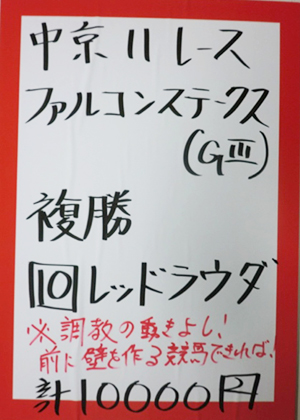 中京11レース
ファルコンステークス
(GⅢ)
複勝
10 レッドラウダ
※調教の動きよし!
前に壁を作る競馬できれば、
計10000円